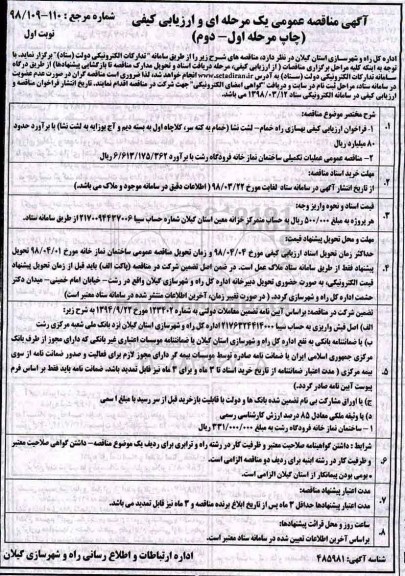 آگهی مناقصه عمومی یک مرحله ای و ارزیابی کیفی
(چاپ مرحله اول - دوم)
شماره مرجع : ۱۱۰-۹۸/۱۰۹
نوبت اول
اداره کل راه و شهرسازی استان گیلان در نظر دارد، مناقصه های شرح زیر را از طریق سامانه "تدارکات الکترونیکی دولت (ستاد)" برگزار نماید. با
توجه به اینکه کلیه مراحل برگزاری مناقصات (از ارزیابی کیفی، مرحله دریافت اسناد و تحویل مدارک مناقصه تا بازگشایی پیشنهادها) از طریق درگاه
سامانه تدارکات الکترونیکی دولت (ستاد) به آدرس www.setadiran.ir انجام خواهد شد، لذا ضروری است مناقصه گران در صورت عدم عضویت
در سامانه ستاد، مراحل ثبت نام در سایت و دریافت "گواهی امضای الکترونیکی" جهت شرکت در مناقصه اقدام نمایند. تاریخ انتشار فراخوان مناقصه و
ارزیابی کیفی در سامانه الکترونیکی ستاد ۱۳۹۸/۰۳/۱۲ می باشد.
۱.
شرح مختصر موضوع مناقصه:
۱- فراخوان ارزیابی کیفی بهسازی راه خمام- لشت نشا (خمام به کته سر، کلاچاه اول به بسته دیم و آج بوزایه به لشت نشا) با برآورد حدود
۸۰ میلیارد ریال
۲- مناقصه عمومی عملیات تکمیلی ساختمان نماز خانه فرودگاه رشت با برآورد ۶/۶۱۳/۱۷۵/۳۶۲ ریال
۲.
مهلت خرید اسناد مناقصه:
از تاریخ انتشار آگهی در سامانه ستاد لغایت مورخ ۹۸/۰۳/۲۲ (اطلاعات دقیق در سامانه موجود و ملاک می باشد.)
۳.
قیمت اسناد و نحوه واریز وجه:
هر پروژه به مبلغ ۵۰۰/۰۰۰ ریال به حساب متمرکز خزانه معین استان گیلان شماره حساب سیبا ۲۱۷۰۰۹۴۴۳۷۰۰۶ از طریق سامانه ستاد.
۴.
مهلت و محل تحویل پیشنهاد قیمت:
حداکثر زمان تحویل اسناد ارزیابی کیفی مورخ ۹۸/۰۴/۰۴ و زمان تحویل مناقصه عمومی ساختمان نماز خانه مورخ ۹۸/۰۴/۰۱ تحویل
پیشنهاد فقط از طریق سامانه ستاد ملاک عمل است. در ضمن اصل تضمین شرکت در مناقصه (پاکت الف) باید قبل از زمان تحویل پیشنهاد
قیمت الکترونیکی، به صورت حضوری تحویل دبیرخانه اداره کل راه و شهرسازی گیلان واقع در رشت- خیابان امام خمینی- میدان دکتر
حشمت اداره کل راه و شهرسازی گردد. (در صورت تغییر زمان، آخرین اطلاعات منتشر شده در سامانه ستاد معتبر است)
۵.
تضمین شرکت در مناقصه: براساس آیین نامه تضمین معاملات دولتی به شماره ۱۲۳۴۰۲ مورخ ۱۳۹۴/۹/۲۲ به شرح زیر:
الف) اصل فیش واریزی به حساب سیبا ۲۱۷۶۳۲۴۴۱۴۰۰۰ اداره کل راه و شهرسازی استان گیلان نزد بانک ملی شعبه مرکزی رشت
ب) یا ضمانتنامه بانکی به نفع اداره کل راه و شهرسازی استان گیلان یا ضمانتنامه موسسات اعتباری غیر بانکی که دارای مجوز از طرف بانک
مرکزی جمهوری اسلامی ایران یا ضمانت نامه صادره توسط موسسات بیمه گر دارای مجوز لازم برای فعالیت و صدور ضمانت نامه از سوی
بیمه مرکزی (مدت اعتبار ضمانتنامه از تاریخ خرید اسناد تا ۳ ماه و برای ۳ ماه نیز قابل تمدید باشد. ضمانت نامه باید فقط بر اساس فرم
پیوست آیین نامه صادر گردد.)
ج) یا اوراق مشارکت بی نام تضمین شده بانک ها و دولت با قابلیت بازخرید قبل از سر رسید با مبلغ اسمی
د) یا وثیقه ملکی معادل ۸۵ درصد ارزش کارشناسی رسمی
۱- ساختمان نماز خانه فرودگاه رشت به مبلغ ۳۳۱/۰۰۰/۰۰۰ ریال
۶.
شرایط : داشتن گواهینامه صلاحیت معتبر و ظرفیت کار در رشته راه و ترابری برای ردیف یک موضوع مناقصه- داشتن گواهی صلاحیت معتبر
و ظرفیت کار در رشته ابنیه برای ردیف دو مناقصه الزامی است.
• بومی بودن پیمانکار از استان گیلان الزامی است.
۷.
مدت اعتبار پیشنهاد مناقصه:
مدت اعتبار پیشنهادها حداقل ۳ ماه پس از تاریخ ابلاغ برنده مناقصه و ۳ ماه نیز قابل تمدید می باشد.
۸.
ساعت روز و محل قرائت پیشنهادها:
براساس آخرین اطلاعات تعیین شده در سامانه ستاد معتبر است.
شناسه آگهی: ۴۸۵۹۸۱
اداره ارتباطات و اطلاع رسانی راه و شهرسازی گیلان